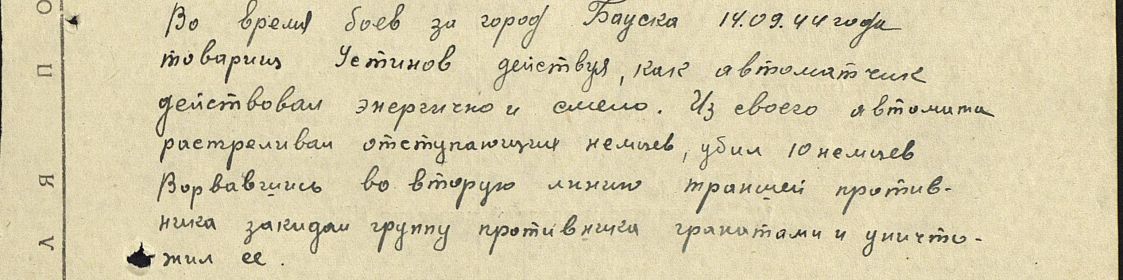 Во время боев за город Бауска 14.09.44 года
товарищ Устинов действуя, как автоматчик
действовал энергично и смело. Из своего автомата
растреливал отступающих немцев, убил 10 немцев
Ворвавшись во вторую линию траншей против-
ника закидал группу противника гранатами и уничто-
жил ее.
Л Я П О